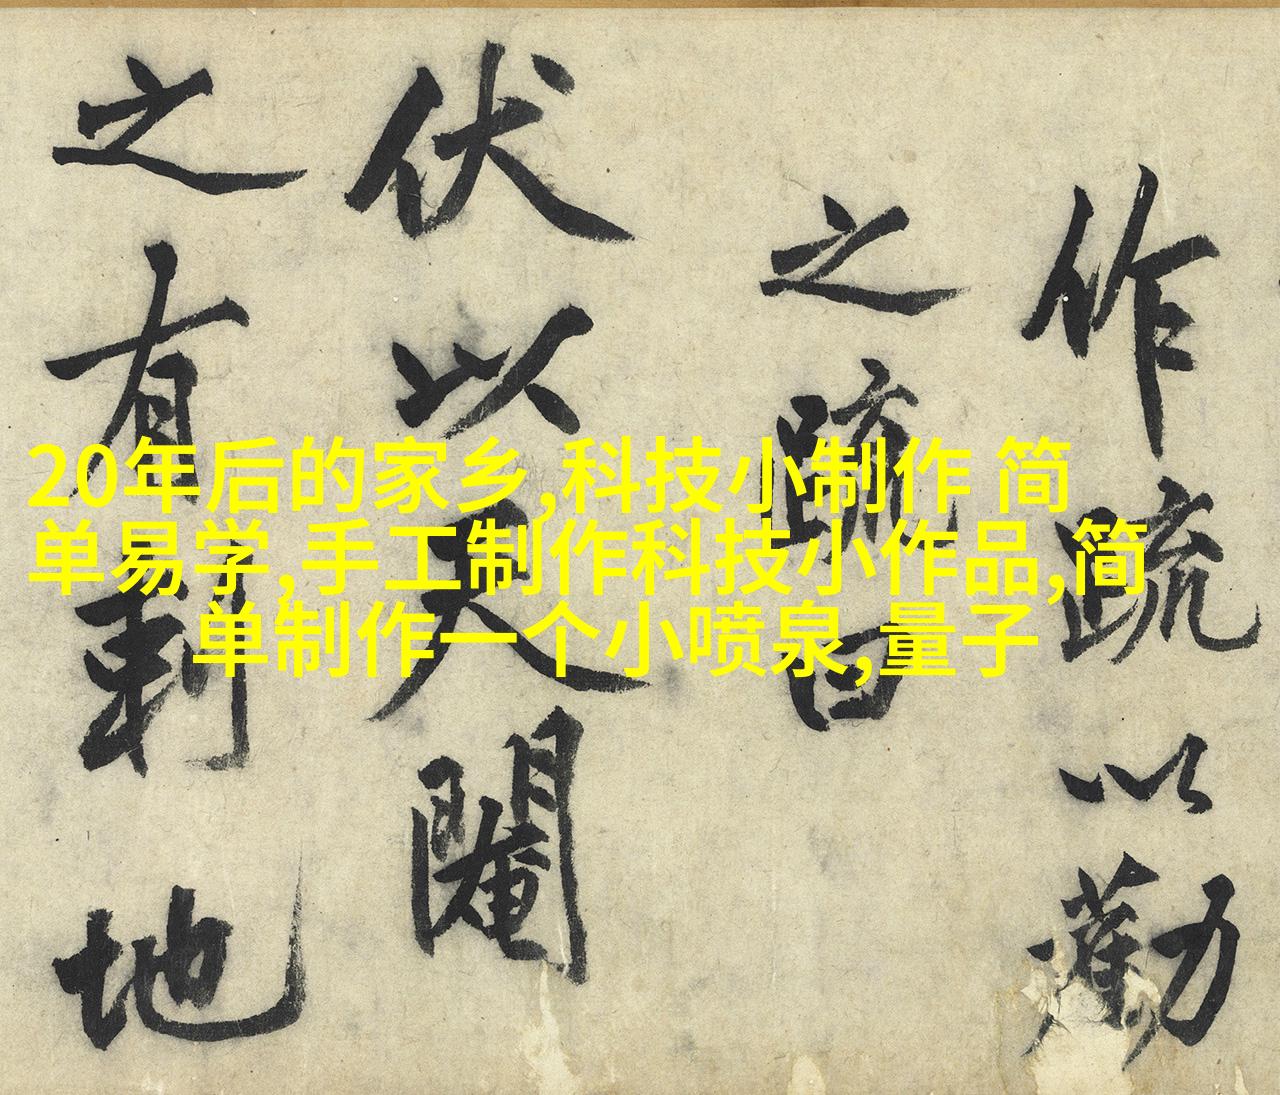 作疏以勸
之疏曰
伏以天閹
之有地
20年后的家乡,科技小制作 简
单易学,手工制作科技小作品,简
单制作一个小喷泉,量子